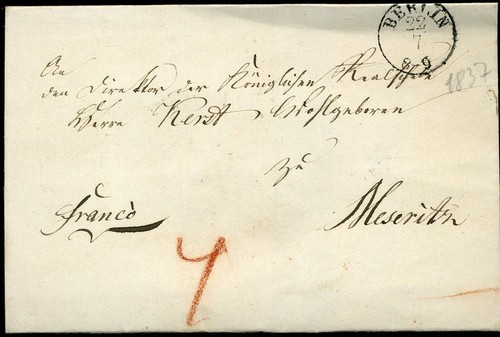 BERLIN
22
7
8/9
1837
An
den Direktor der Königlichen Realschule
Herrn Kerst Wohlgeboren
zu
Franco
Meseritz
4